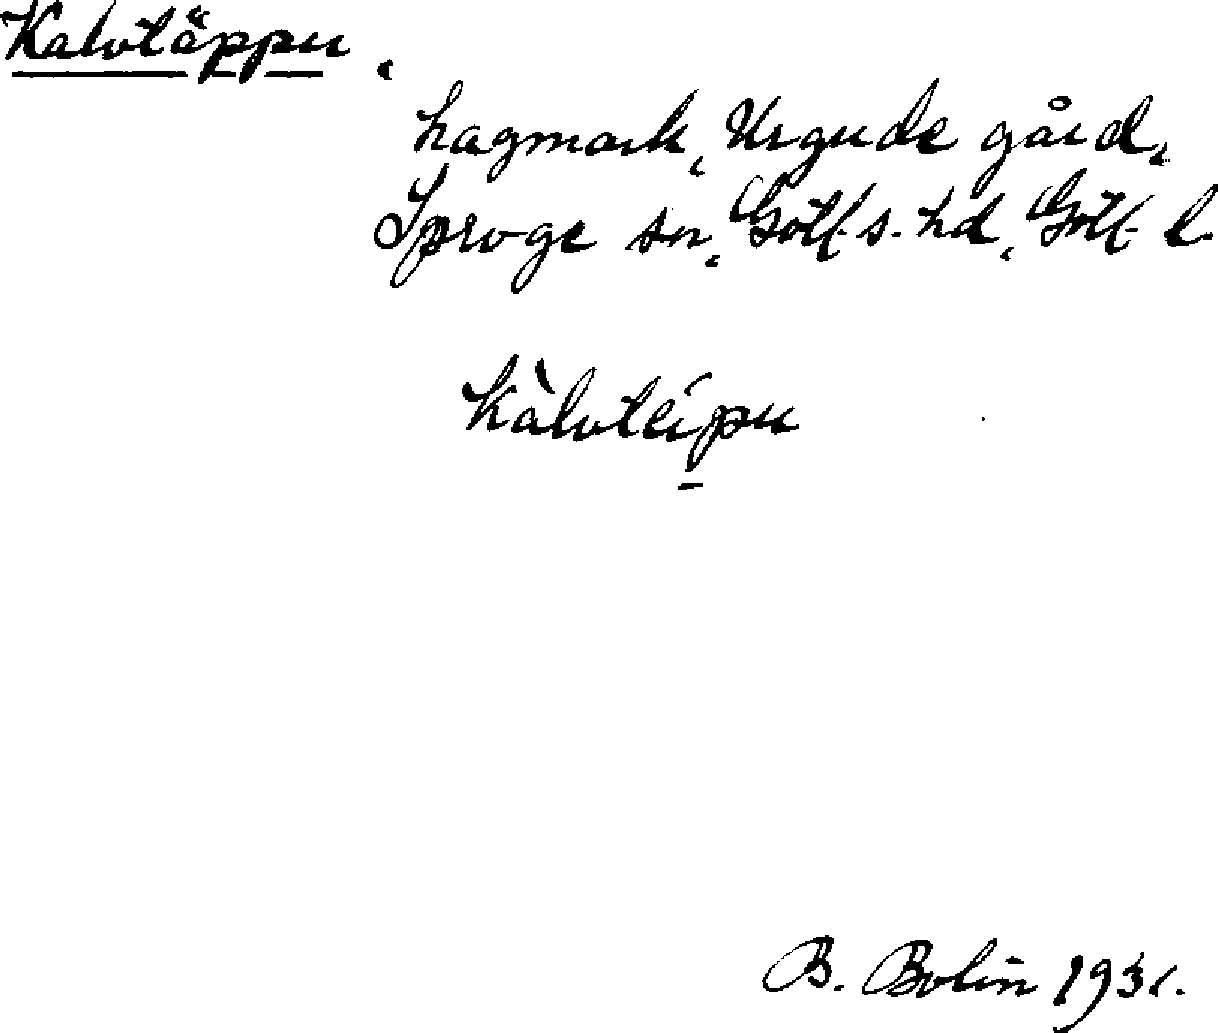 Kalvtäppu,
hagmark, Urgude gård,
Sproge sn, Gotl. s. hd, Gotl. l.
kàlvtéipu
B. Bolin 1931.